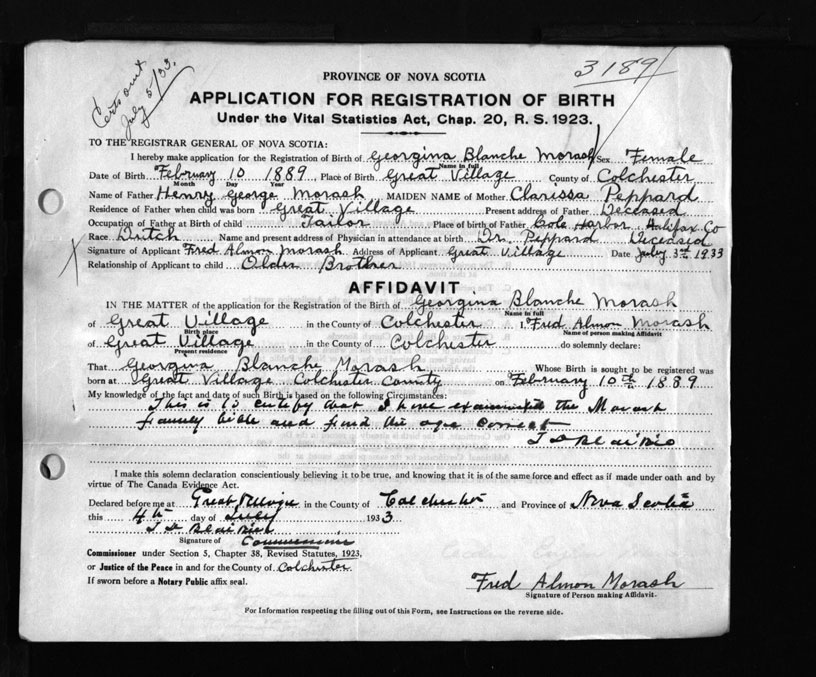 Certs out
July 5/33.
3189
PROVINCE OF NOVA SCOTIA
APPLICATION FOR REGISTRATION OF BIRTH
Under the Vital Statistics Act, Chap. 20, R. S. 1923.
TO THE REGISTRAR GENERAL OF NOVA SCOTIA:
I hereby make application for the Registration of Birth of Georgina Blanche Morash Sex Female
Name in full
Date of Birth February 10 1889 Place of Birth Great Village County of Colchester
Month Day Year
Name of Father Henry George Morash MAIDEN NAME of Mother Clarissa Peppard
Residence of Father when child was born Great Village Present address of Father Deceased
Occupation of Father at Birth of child Tailor Place of birth of Father Cole Harbor, Halifax Co
Race Dutch Name and present address of Physician in attendance at birth Dr. Peppard Deceased
Signature of Applicant Fred Almon Morash Address of Applicant Great Village Date July 3rd 1933
Relationship of Applicant to child Older Brother
AFFIDAVIT
IN THE MATTER of the application for the Registration of the Birth of Georgina Blanche Morash
Name in full
of Great Village in the County of Colchester I, Fred Almon Morash
Birth place Name of person making Affidavit
of Great Village in the County of Colchester do solemnly declare:
Present residence
That Georgina Blanche Morash Whose Birth is sought to be registered was
born at Great Village Colchester County on February 10th 1889
My knowledge of the fact and date of such Birth is based on the following Circumstances:
This is to certify that I have examined the Morash
family bible and find the age correct
I make this solemn declaration conscientiously believing it to be true, and knowing that it is of the same force and effect as if made under oath and by
virtue of The Canada Evidence Act.
Declared before me at Great Village in the County of Colchester and Province of Nova Scotia
this 4th day of July 1933
Signature of Commissioner
Commissioner under Section 5, Chapter 38, Revised Statutes, 1923,
or Justice of the Peace in and for the County of Colchester
If sworn before a Notary Public affix seal.
Fred Almon Morash
Signature of Person making Affidavit.
For Information respecting the filling out of this Form, see Instructions on the reverse side.